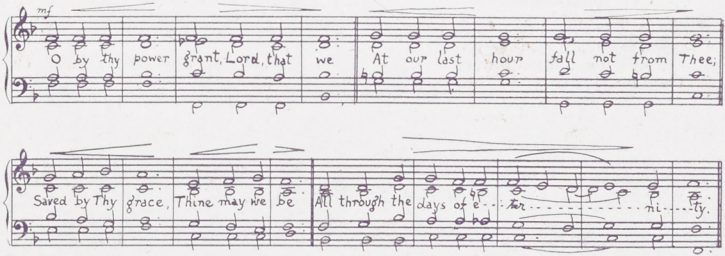 mf
O by thy power grant, Lord, that we At our last hour fall not from Thee;
Saved by Thy grace, Thine may we be All through the days of e - ter - ni - ty.